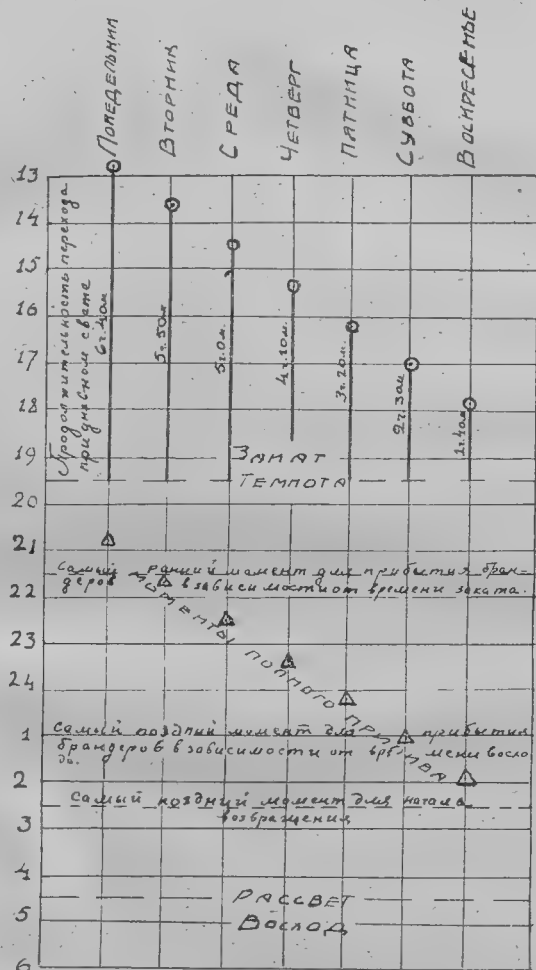 ПОНЕДЕЛЬНИК
ВТОРНИК
СРЕДА
ЧЕТВЕРГ
ПЯТНИЦА
СУББОТА
ВОСКРЕСЕНЬЕ
13
14
15
16
17
18
19
20
21
22
23
24
1
2
3
4
5
6
Продолжительность перехода
при дневном свете
6г.40м
5г.50м
5г.0м.
4г.10м.
3г.20м.
2г.30м
1г.40м
ЗАКАТ
ТЕМНОТА
Самый ранний момент для прибытия бран-
деров в зависимости от времени заката.
МОМЕНТЫ ПОЛНОГО ПРИЛИВА
Самый поздний момент для прибытия
брандеров в зависимости от времени восхо
да.
Самый поздний момент для начала
возвращения
РАССВЕТ
ВОСХОД